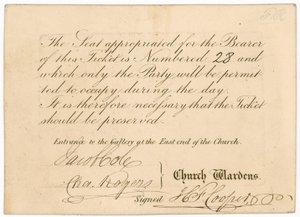 The Seat appropriated for the Bearer
of this Ticket is Numbered 28 and
which only the Party will be permit
ted to occupy during the day.
It is therefore necessary that the Ticket
should be preserved.
Entrance to the Gallery at the East end of the Church.
Church Wardens.
Cha. Rogers
Signed